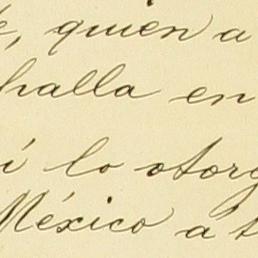 , quien a
halla en
í lo otorg
México a t